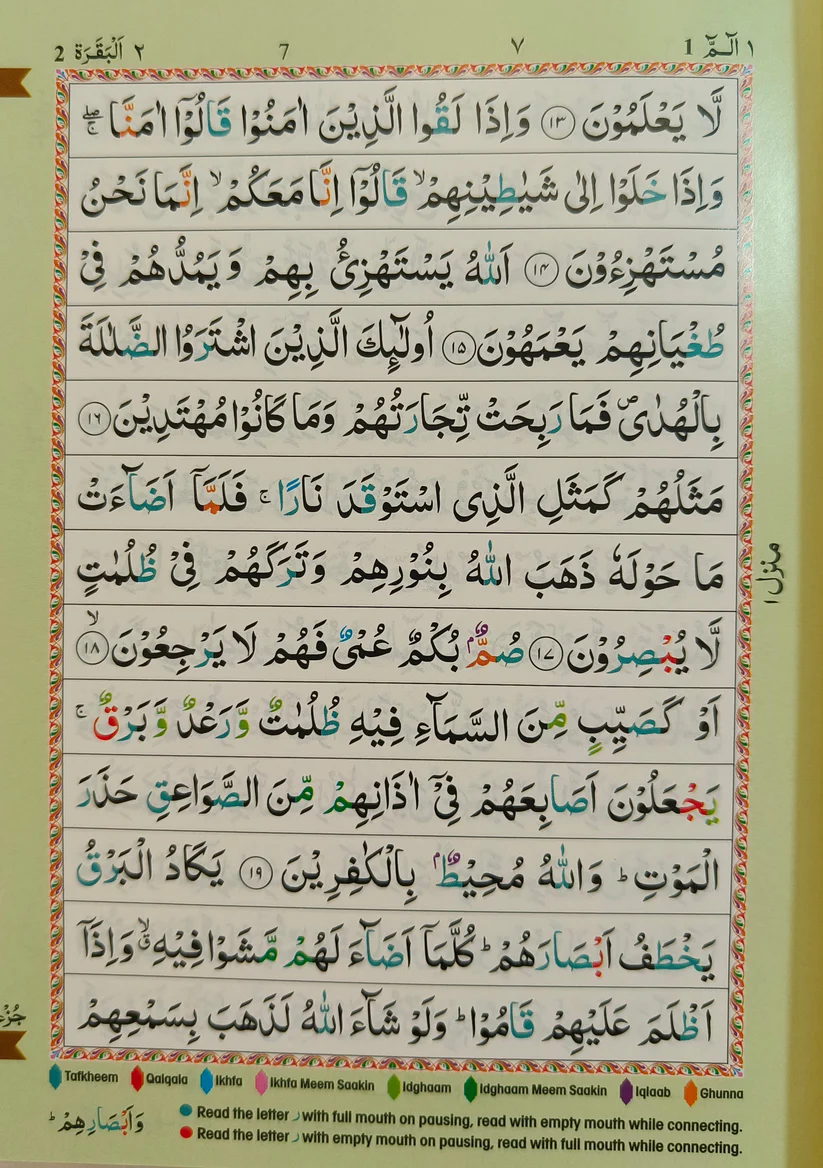 ١ الٓمّٓ 1
٧
7
٢ اَلْبَقَرَة 2
لَّا يَعْلَمُوْنَ ﴿١٣﴾ وَاِذَا لَقُوا الَّذِيْنَ اٰمَنُوْا قَالُوْۤا اٰمَنَّا ۚۖ
وَاِذَا خَلَوْا اِلٰى شَيٰطِيْنِهِمْ ۙ قَالُوْۤا اِنَّا مَعَكُمْ ۙ اِنَّمَا نَحْنُ
مُسْتَهْزِءُوْنَ ﴿١٤﴾ اَللّٰهُ يَسْتَهْزِئُ بِهِمْ وَيَمُدُّهُمْ فِيْ
طُغْيَانِهِمْ يَعْمَهُوْنَ ﴿١٥﴾ اُولٰٓئِكَ الَّذِيْنَ اشْتَرَوُا الضَّلٰلَةَ
بِالْهُدٰى ۪ فَمَا رَبِحَتْ تِّجَارَتُهُمْ وَمَا كَانُوْا مُهْتَدِيْنَ ﴿١٦﴾
مَثَلُهُمْ كَمَثَلِ الَّذِى اسْتَوْقَدَ نَارًا ۚ فَلَمَّاۤ اَضَآءَتْ
مَا حَوْلَهٗ ذَهَبَ اللّٰهُ بِنُوْرِهِمْ وَتَرَكَهُمْ فِيْ ظُلُمٰتٍ
لَّا يُبْصِرُوْنَ ﴿١٧﴾ صُمٌّۢ بُكْمٌ عُمْيٌ فَهُمْ لَا يَرْجِعُوْنَ ﴿١٨﴾ ۙ
اَوْ كَصَيِّبٍ مِّنَ السَّمَآءِ فِيْهِ ظُلُمٰتٌ وَّرَعْدٌ وَّبَرْقٌ ۚ
يَجْعَلُوْنَ اَصَابِعَهُمْ فِيْۤ اٰذَانِهِمْ مِّنَ الصَّوَاعِقِ حَذَرَ
الْمَوْتِ ؕ وَاللّٰهُ مُحِيْطٌۢ بِالْكٰفِرِيْنَ ﴿١٩﴾ يَكَادُ الْبَرْقُ
يَخْطَفُ اَبْصَارَهُمْ ؕ كُلَّمَاۤ اَضَآءَ لَهُمْ مَّشَوْا فِيْهِ ۙۗ وَاِذَاۤ
اَظْلَمَ عَلَيْهِمْ قَامُوْا ؕ وَلَوْ شَآءَ اللّٰهُ لَذَهَبَ بِسَمْعِهِمْ
منزل ١
Tafkheem Qalqala Ikhfa Ikhfa Meem Saakin Idghaam Idghaam Meem Saakin Iqlaab Ghunna
وَاَبْصَارِهِمْ ؕ
Read the letter ر with full mouth on pausing, read with empty mouth while connecting.
Read the letter ر with empty mouth on pausing, read with full mouth while connecting.